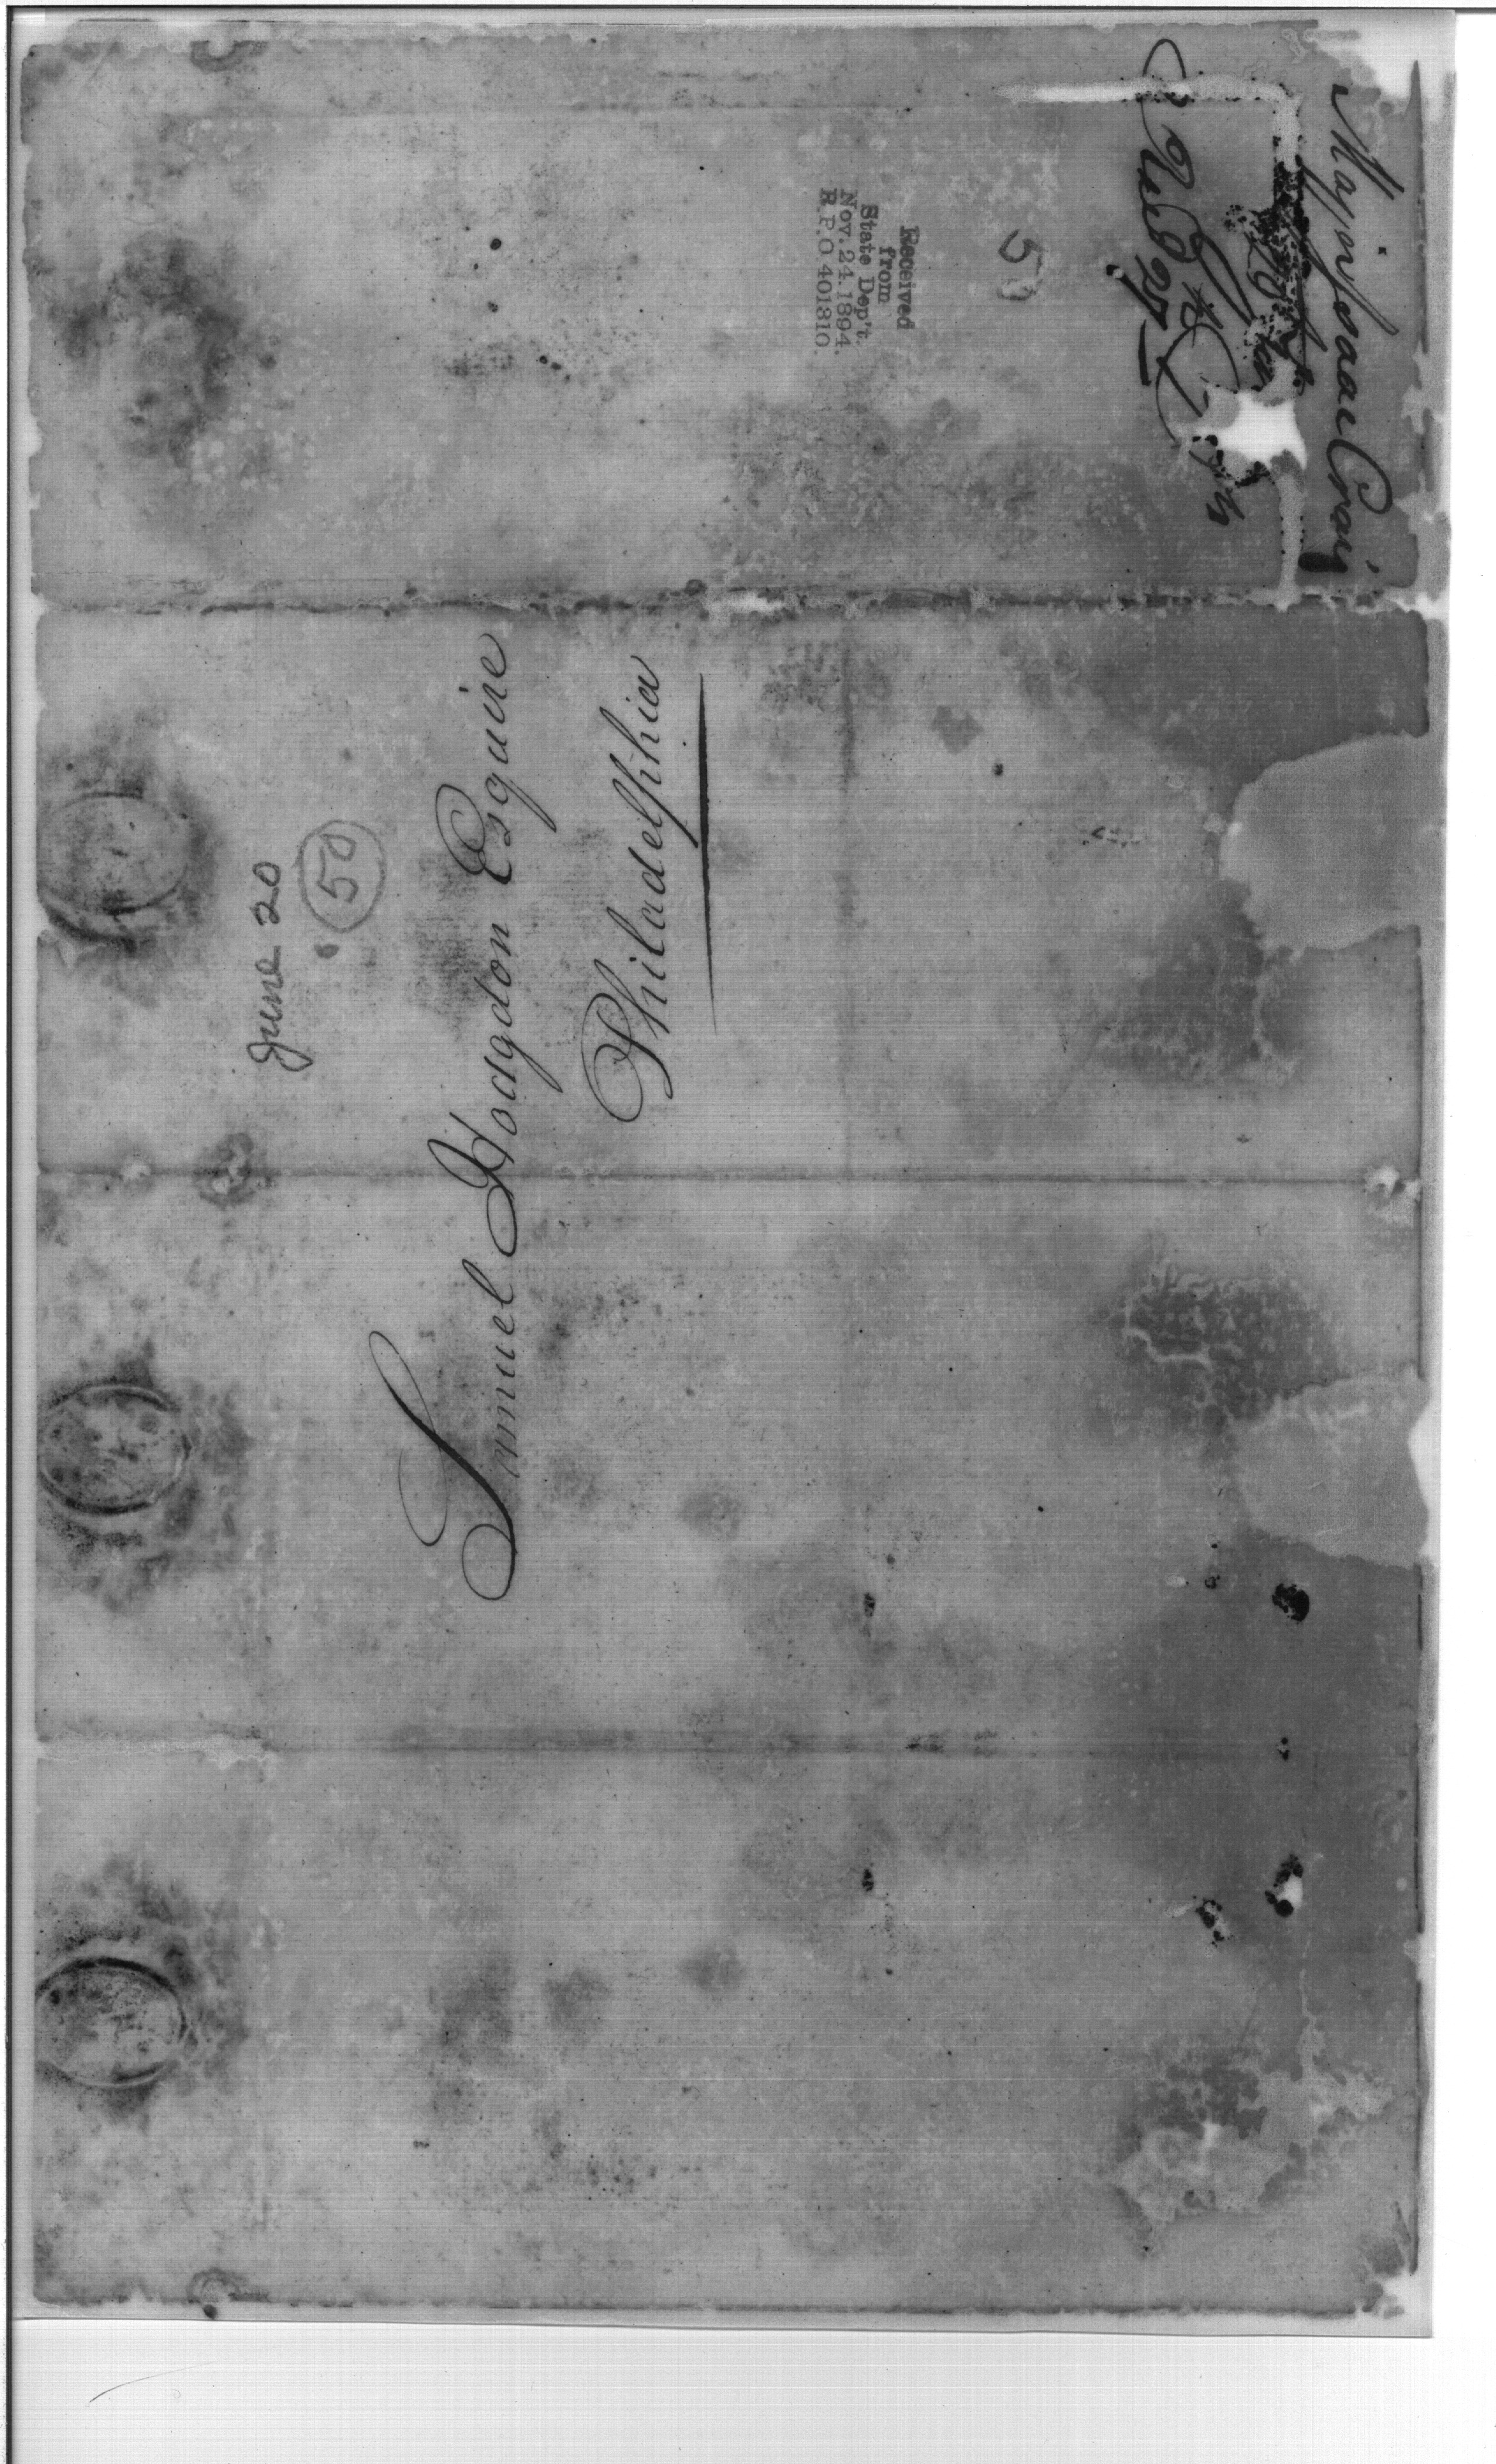 Major Isaac Craig
50
Received
from
State Dep't.
Nov. 24. 1894.
R.P.O 401310.
June 20
50
Samuel Hodgdon Esquire
Philadelphia